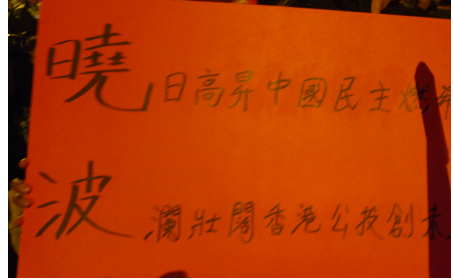 曉日高昇中國民主燃希
波瀾壯闊香港公投創未